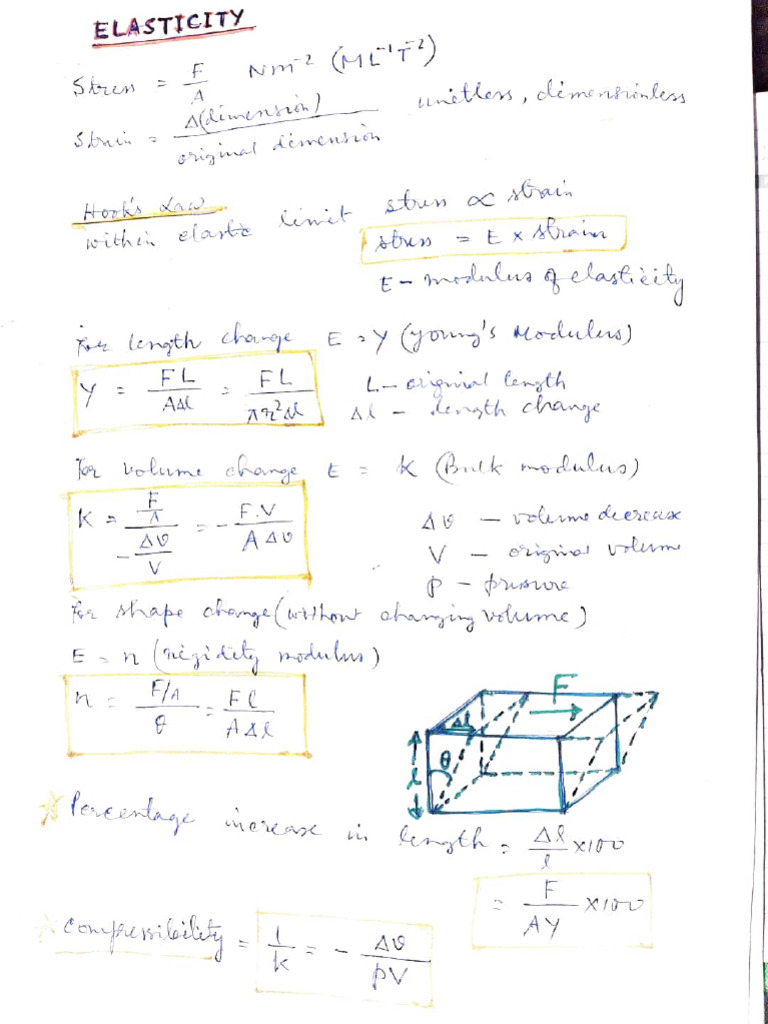 ELASTICITY
Stress = F/A Nm⁻² (ML⁻¹T⁻²)
Strain = Δ(dimension)/original dimension unitless, dimensionless
Hook's Law
within elastic limit stress ∝ strain
stress = E × strain
E – modulus of elasticity
For length change E = Y (young's Modulus)
Y = FL/AΔl = FL/πr²Δl
L – original length
Δl – length change
For volume change E = K (Bulk modulus)
K = (F/A)/(-Δv/V) = - F.V/AΔv
Δv – volume decrease
V – original volume
P – pressure
For shape change (without changing volume)
E = n (rigidity modulus)
n = F/A/θ = Fl/AΔl
F
Δl
θ
l
Percentage increase in length = Δl/l ×100
= F/AY ×100
Compressibility = 1/K = - Δv/PV